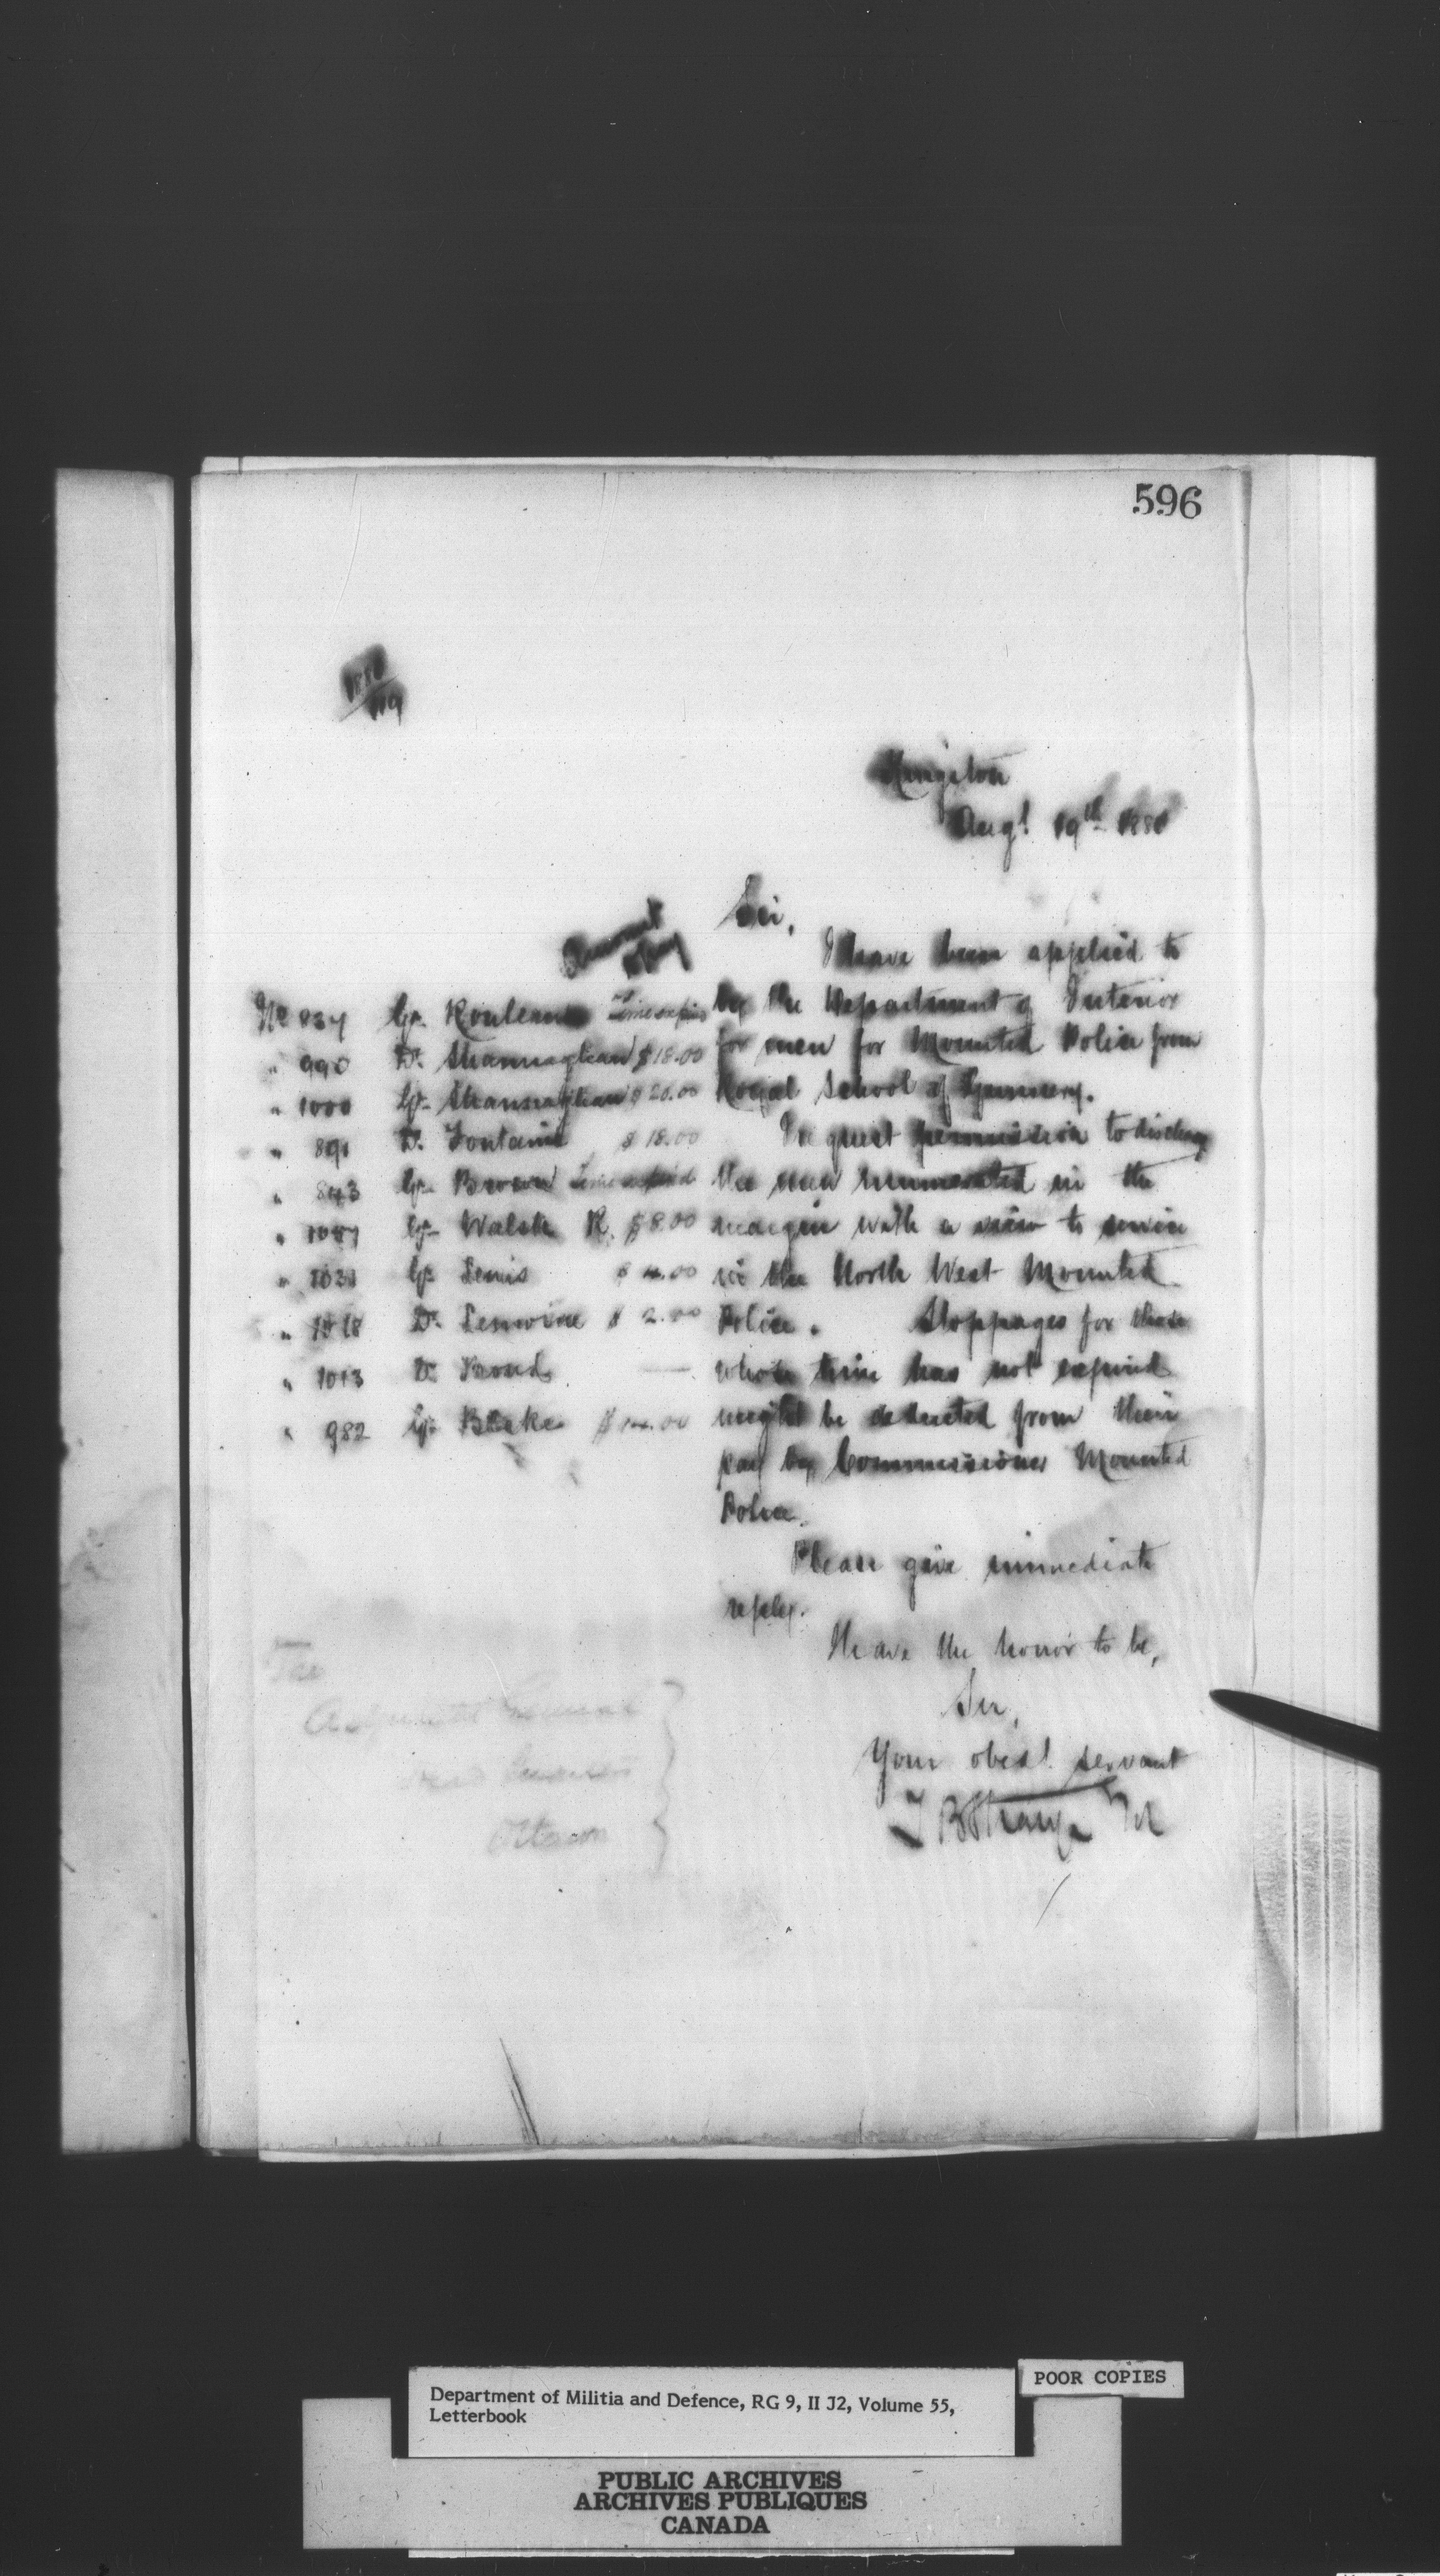 596
Kingston
Augt 19th 1880
Sir,
I have been applied to
by the Department of Interior
for men for Mounted Police from
Royal School of Gunnery.
I request permission to discharge
the men enumerated in the
margin with a view to service
in the North West Mounted
Police. Stoppages for those
whose time has not expired
might be deducted from their
pay by Commissioner Mounted
Police.
Please give immediate
reply.
I have the honor to be,
Sir,
Your obedt. servant
T B Strange
No 834 Gr. Rouleau Time expired
" 990 Dr. Shannaghan $18.00
" 1000 Gr. Shannaghan $20.00
" 891 Dr. Fontaine $18.00
" 843 Gr. Brown Time expired
" Gr. Walsh R. $8.00
" Gr. Lewis $4.00
" 1018 Dr. Lemoine $2.00
" 1013 Dr. Bond —
" 982 Gr. Blake $14.00
To
Adjutant General
Head Quarters
Ottawa
POOR COPIES
Department of Militia and Defence, RG 9, II J2, Volume 55,
Letterbook
PUBLIC ARCHIVES
ARCHIVES PUBLIQUES
CANADA